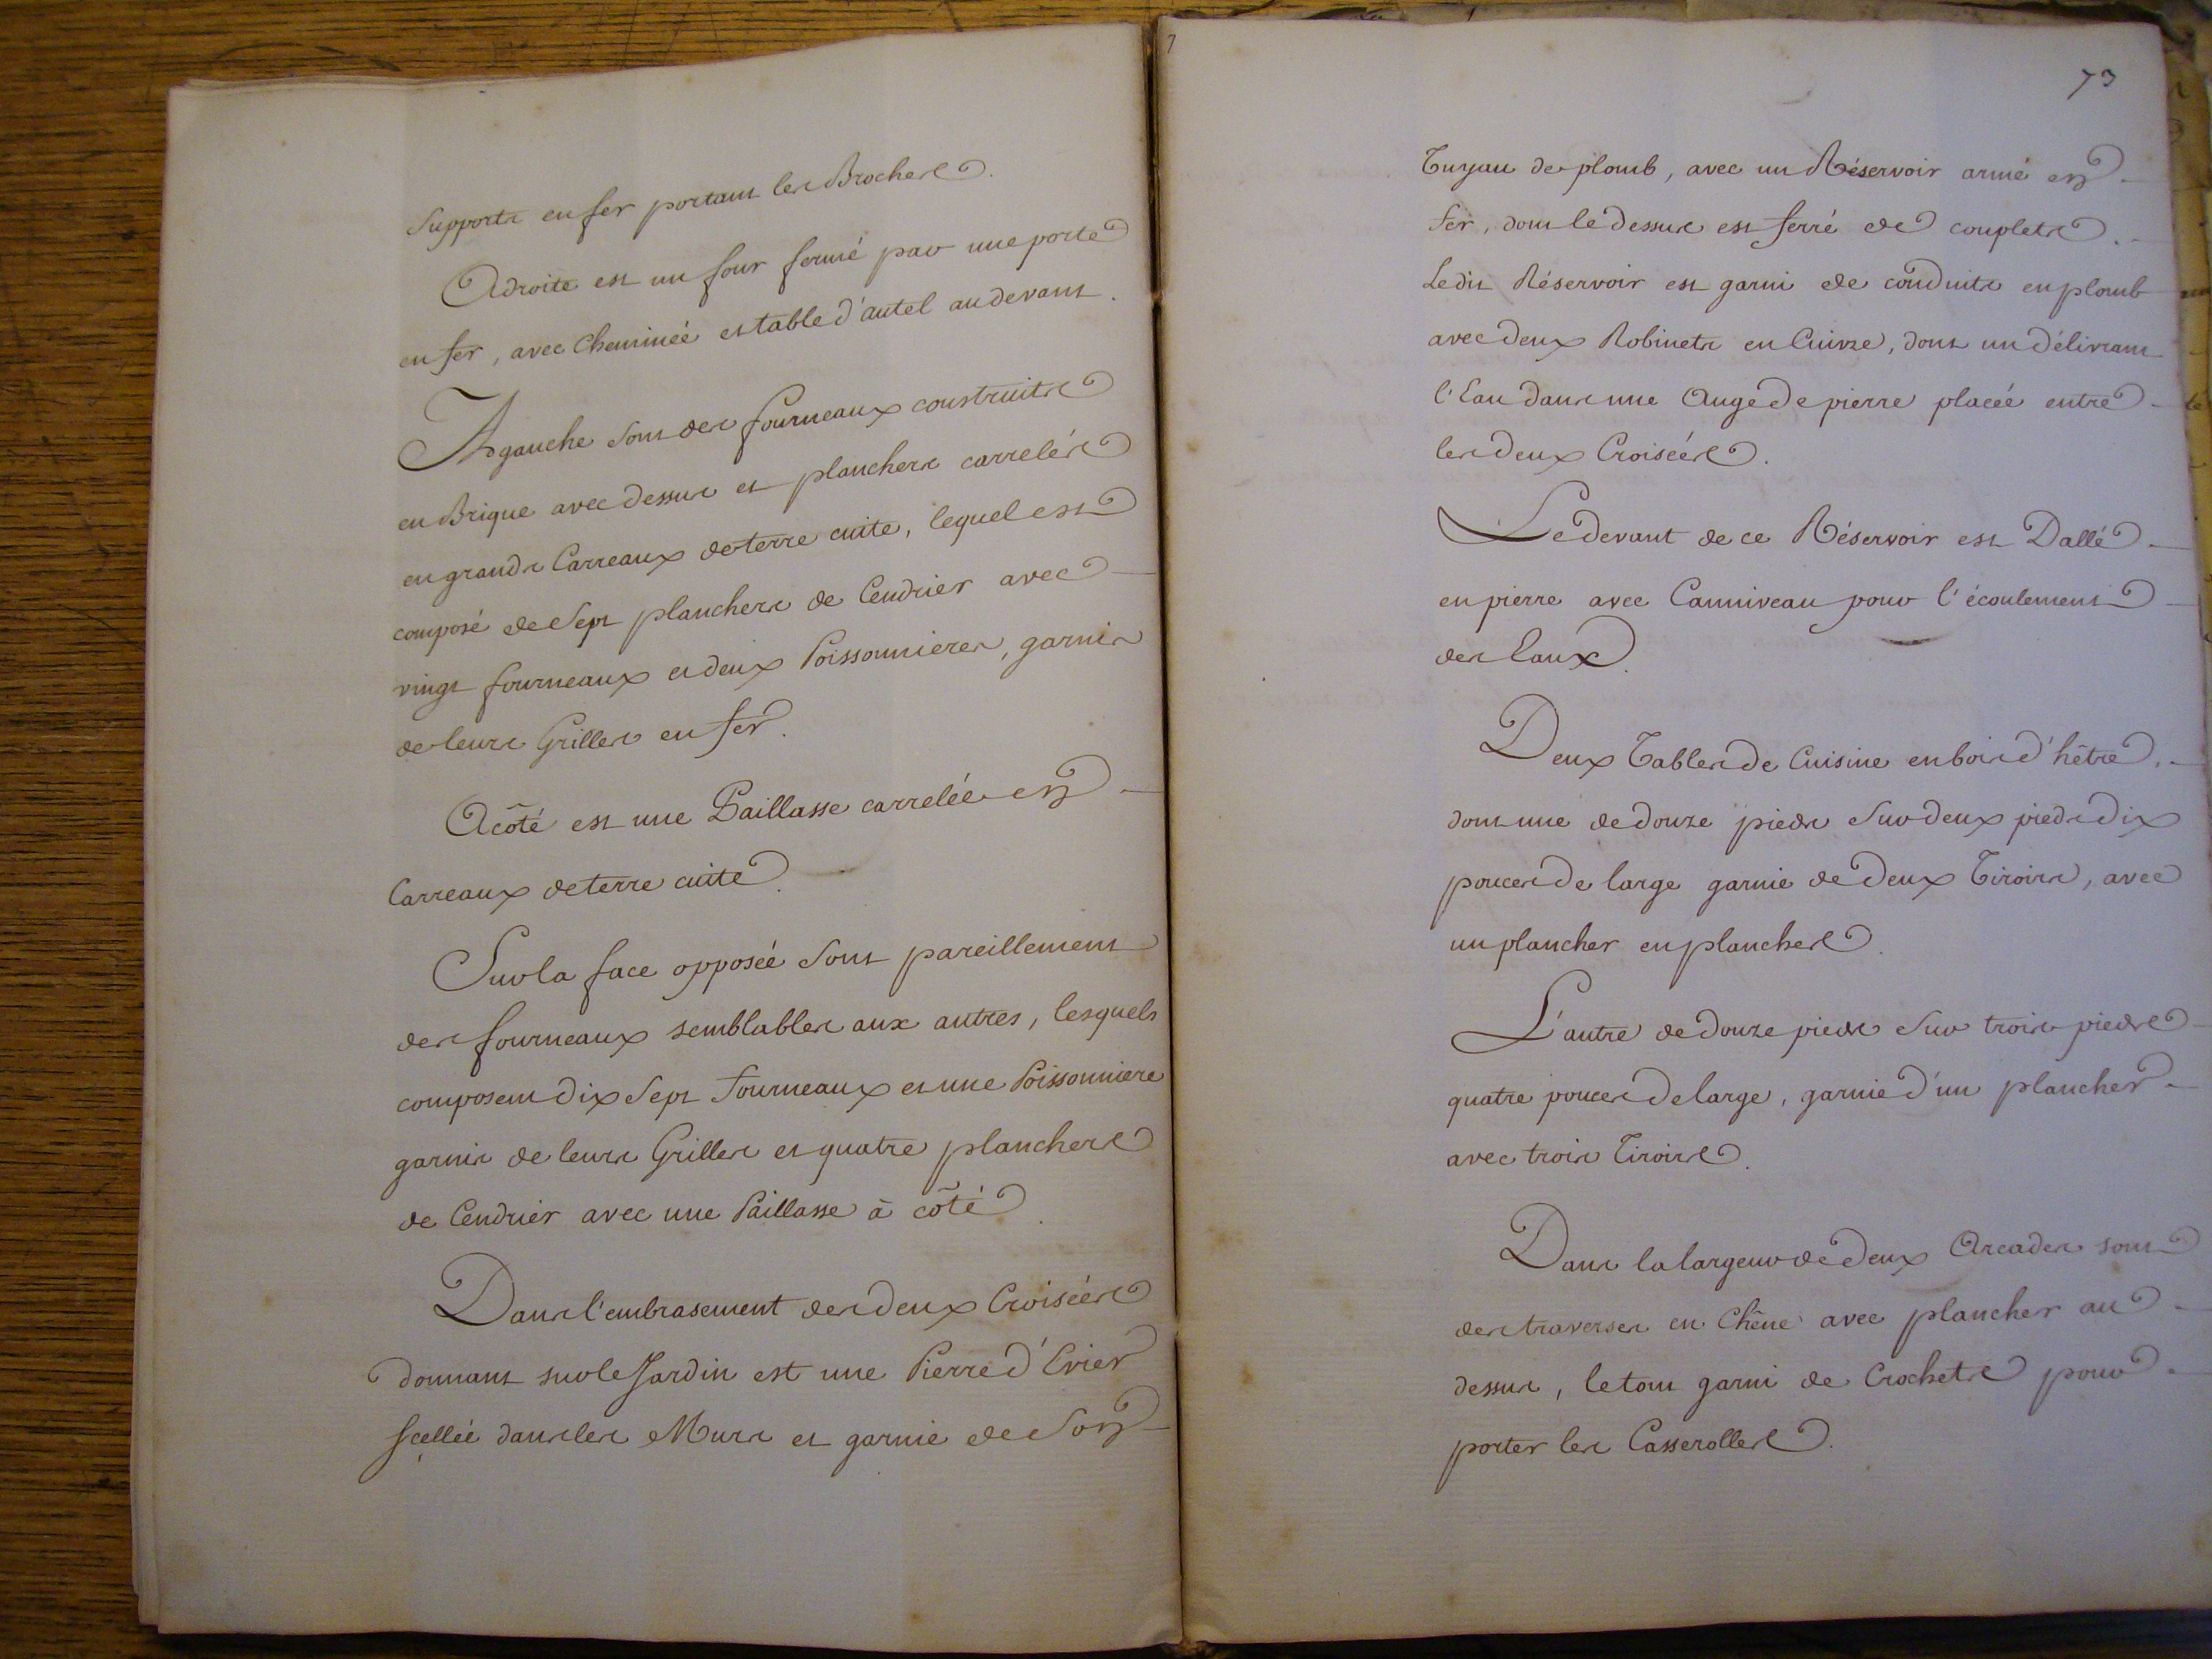 Supports en fer portant les Broches.
A droite est un four fermé par une porte
en fer, avec Cheminée et table d'autel au devant.
A gauche sont des fourneaux construits
en Brique avec dessus et planchers carrelés
en grands Carreaux de terre cuite, lequel est
composé de Sept planchers de Cendrier avec
vingt fourneaux et deux Poissonnieres, garnis
de leurs Grilles en fer.
A côté est une Paillasse carrelée en
Carreaux de terre cuite.
Sur la face opposée sont pareillement
des fourneaux semblables aux autres, lesquels
composent dix Sept Fourneaux et une Poissonniere
garnis de leurs Grilles et quatre planchers
de Cendrier avec une Paillasse à côté.
Dans l'embrasement des deux Croisées
donnant sur le Jardin est une Pierre d'Evier
scellée dans les Murs et garnie de Son
73
Tuyau de plomb, avec un Réservoir armé en
fer, dont le dessus est ferré de couplets.
Ledit Réservoir est garni de conduits en plomb
avec deux Robinets en Cuivre, dont un délivrant
l'Eau dans une Auge de pierre placée entre
les deux Croisées.
Le devant de ce Réservoir est Dallé
en pierre avec Canniveau pour l'écoulement
des Eaux.
Deux Tables de Cuisine en bois d'hêtre,
dont une de douze pieds Sur deux pieds dix
pouces de large garnie de deux Tiroirs, avec
un plancher en planches.
L'autre de douze pieds Sur trois pieds
quatre pouces de large, garnie d'un plancher
avec trois Tiroirs.
Dans la largeur de deux Arcades sont
des traverses en Chêne avec plancher au
dessus, le tout garni de Crochets pour
porter les Casserolles.